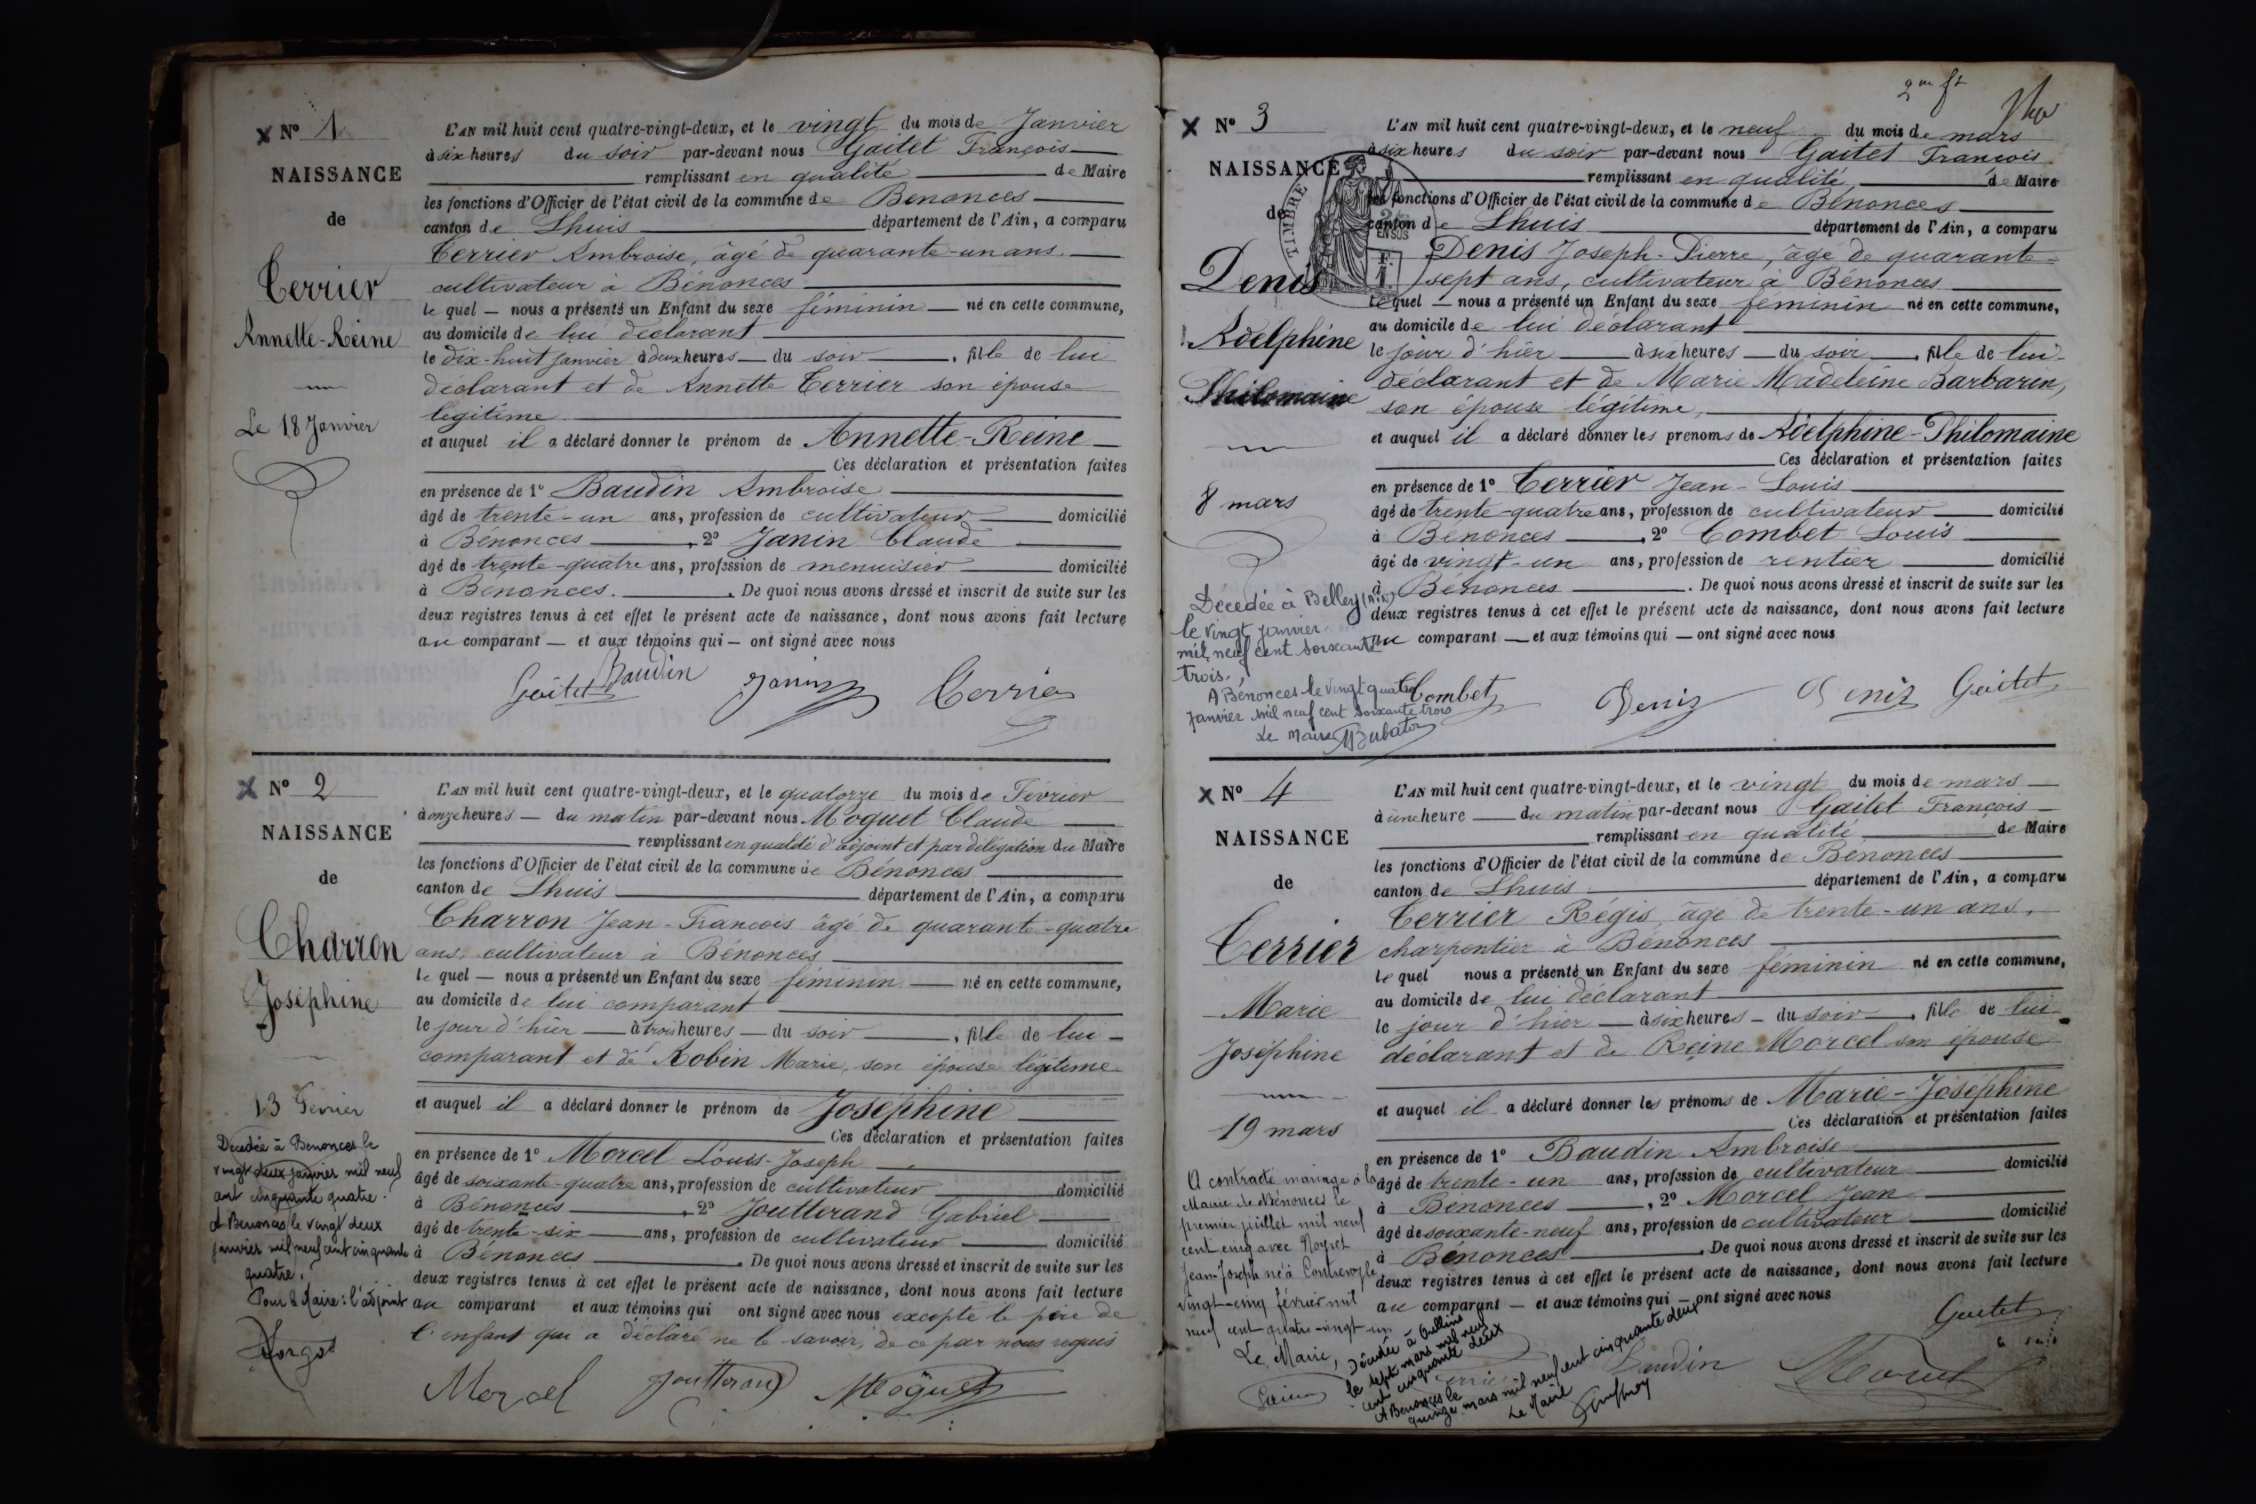 N° 1
NAISSANCE
de
Terrier
Annette-Reine
Le 18 Janvier
L'AN mil huit cent quatre-vingt-deux, et le vingt du mois de Janvier
à six heures du soir par-devant nous Gaitet François
remplissant en qualité de Maire
les fonctions d'Officier de l'état civil de la commune de Bénonces
canton de Lhuis département de l'Ain, a comparu
Terrier Ambroise, âgé de quarante-un ans
cultivateur à Bénonces
le quel — nous a présenté un Enfant du sexe féminin né en cette commune,
au domicile de lui déclarant
le dix-huit janvier à deux heures du soir, fille de lui
déclarant et de Annette Terrier son épouse
légitime
et auquel il a déclaré donner le prénom de Annette-Reine
Ces déclaration et présentation faites
en présence de 1° Baudin Ambroise
âgé de trente-un ans, profession de cultivateur domicilié
à Bénonces, 2° Janin Claude
âgé de trente-quatre ans, profession de menuisier domicilié
à Bénonces. De quoi nous avons dressé et inscrit de suite sur les
deux registres tenus à cet effet le présent acte de naissance, dont nous avons fait lecture
au comparant — et aux témoins qui — ont signé avec nous
Gaitet Baudin Janin Terrier
N° 2
NAISSANCE
de
Charron
Joséphine
13 Février
Décédée à Bénonces le
vingt deux janvier mil neuf
cent cinquante quatre.
A Bénonces le vingt deux
janvier mil neuf cent cinquante
quatre.
Pour le Maire : l'adjoint
L'AN mil huit cent quatre-vingt-deux, et le quatorze du mois de Février
à onze heures — du matin par-devant nous Moguet Claude
remplissant en qualité d'adjoint et par délégation du Maire
les fonctions d'Officier de l'état civil de la commune de Bénonces
canton de Lhuis département de l'Ain, a comparu
Charron Jean-François âgé de quarante-quatre
ans, cultivateur à Bénonces
le quel — nous a présenté un Enfant du sexe féminin — né en cette commune,
au domicile de lui comparant
le jour d'hier à trois heures — du soir, fille de lui
comparant et de Robin Marie, son épouse légitime
et auquel il a déclaré donner le prénom de Joséphine
Ces déclaration et présentation faites
en présence de 1° Morcel Louis-Joseph
âgé de soixante-quatre ans, profession de cultivateur domicilié
à Bénonces, 2° Joutterand Gabriel
âgé de trente-six ans, profession de cultivateur domicilié
à Bénonces. De quoi nous avons dressé et inscrit de suite sur les
deux registres tenus à cet effet le présent acte de naissance, dont nous avons fait lecture
au comparant et aux témoins qui ont signé avec nous excepté le père de
l'enfant qui a déclaré ne le savoir, de ce par nous requis
Morcel Joutterand Moguet
2me ft
N° 3
NAISSANCE
de
TIMBRE
EN SUS
Denis
Adelphine
Philomaine
8 mars
Décédée à Belley (Ain)
le vingt janvier
mil neuf cent soixante
trois.
A Bénonces le vingt quatre
janvier mil neuf cent soixante trois
Le Maire
L'AN mil huit cent quatre-vingt-deux, et le neuf du mois de mars
à six heures du soir par-devant nous Gaitet François
remplissant en qualité de Maire
les fonctions d'Officier de l'état civil de la commune de Bénonces
canton de Lhuis département de l'Ain, a comparu
Denis Joseph-Pierre, âgé de quarante-
sept ans, cultivateur à Bénonces
le quel — nous a présenté un Enfant du sexe féminin né en cette commune,
au domicile de lui déclarant
le jour d'hier à six heures — du soir, fille de lui
déclarant et de Marie Madeleine Barbarin,
son épouse légitime,
et auquel il a déclaré donner les prenoms de Adelphine-Philomaine
Ces déclaration et présentation faites
en présence de 1° Terrier Jean-Louis
âgé de trente-quatre ans, profession de cultivateur domicilié
à Bénonces, 2° Combet Louis
âgé de vingt-un ans, profession de rentier domicilié
à Bénonces. De quoi nous avons dressé et inscrit de suite sur les
deux registres tenus à cet effet le présent acte de naissance, dont nous avons fait lecture
au comparant — et aux témoins qui — ont signé avec nous
Combet Deniz Deniz Gaitet
N° 4
NAISSANCE
de
Terrier
Marie
Joséphine
19 mars
A contracté mariage à la
Mairie de Bénonces le
premier juillet mil neuf
cent cinq avec
Jean-Joseph né à le
vingt-cinq février mil
neuf cent quatre-vingt-un
Le Maire,
Décédée à Oullins
le sept mars mil neuf
cent cinquante deux
A Bénonces le
quinze mars mil neuf cent cinquante deux
Le Maire
L'AN mil huit cent quatre-vingt-deux, et le vingt du mois de mars
à une heure du matin par-devant nous Gaitet François
remplissant en qualité de Maire
les fonctions d'Officier de l'état civil de la commune de Bénonces
canton de Lhuis département de l'Ain, a comparu
Terrier Régis, âgé de trente-un ans,
charpentier à Bénonces
le quel nous a présenté un Enfant du sexe féminin né en cette commune,
au domicile de lui déclarant
le jour d'hier — à six heures — du soir, fille de lui
déclarant et de Reine Morcel son épouse
et auquel il a déclaré donner les prénoms de Marie-Joséphine
Ces déclaration et présentation faites
en présence de 1° Baudin Ambroise
âgé de trente-un ans, profession de cultivateur domicilié
à Bénonces, 2° Morcel Jean
âgé de soixante-neuf ans, profession de cultivateur domicilié
à Bénonces. De quoi nous avons dressé et inscrit de suite sur les
deux registres tenus à cet effet le présent acte de naissance, dont nous avons fait lecture
au comparant — et aux témoins qui — ont signé avec nous
Gaitet
Terrier Baudin Morcel